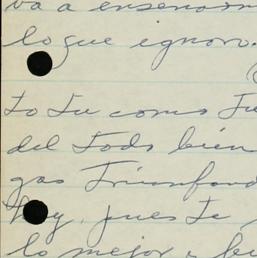 va a enseñarm
lo que ignoro.
to tu como Tu
del Todo bién
gas Triunfand
hoy, pues Te
lo mejor y fe